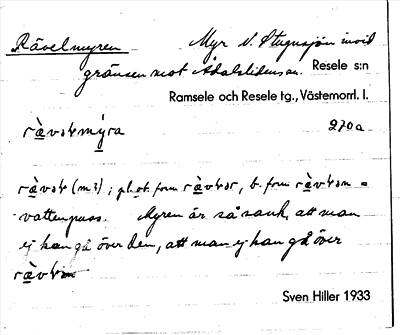 Rävelmyren Myr N. Stugusjön invid
gränsen mot Ådalsliden sn. Resele s:n
Ramsele och Resele tg., Västernorrl. l.
rävǝłmýra 270a
rävǝł (m2); pl. ob. form rävłǝr, b. form rävłǝn =
vattenpuss. Myren är så sank, att man
ej kan gå över den, att man ej kan gå över
Sven Hiller 1933